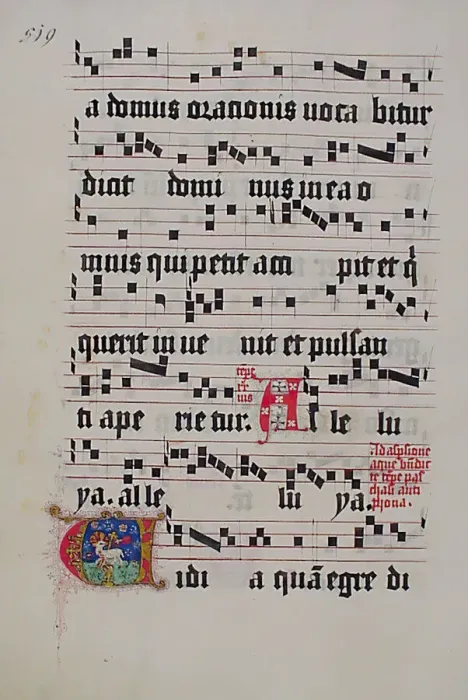 519
a domus oracionis uoca bitur
dicit domi nus in ea o
mnis qui petit acci pit et q
querit in ue nit et pulsan
ti ape rietur. Al le lu
Ad aspsione
aque bn̄dic
te tp̄e pas
chali anti
phona.
ya. alle lu ya.
Vidi aquā egre di